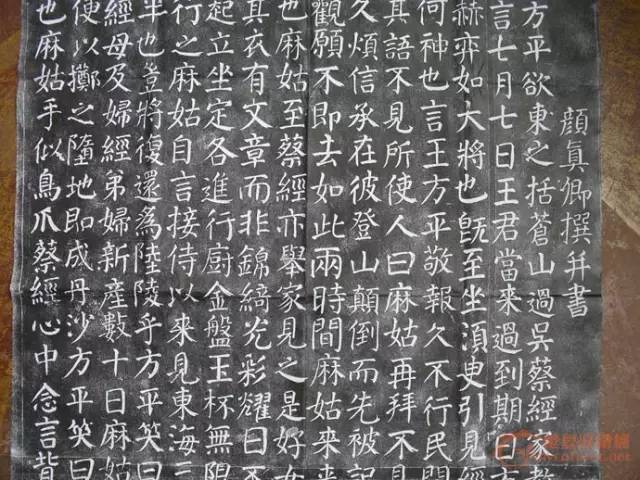 顔真卿撰并書
方平欲東之括蒼山過吳蔡經家教
言七月七日王君當來過到期日方
赫弈如大將也既至坐須臾引見經
何神也言王方平敬報久不行民間
其語不見所使人曰麻姑再拜不見
久煩信承在彼登山顛倒而先被記
觀願不即去如此兩時間麻姑來來
也麻姑至蔡經亦舉家見之是好女
其衣有文章而非錦綺光彩耀日不
起立坐定各進行廚金盤玉杯無限
行之麻姑自言接侍以來見東海三
半也豈將復還為陸陵乎方平笑曰
經母及婦經弟婦新産數十日麻姑
便以擲之墮地即成丹沙方平笑曰
也麻姑手似鳥爪蔡經心中念言背